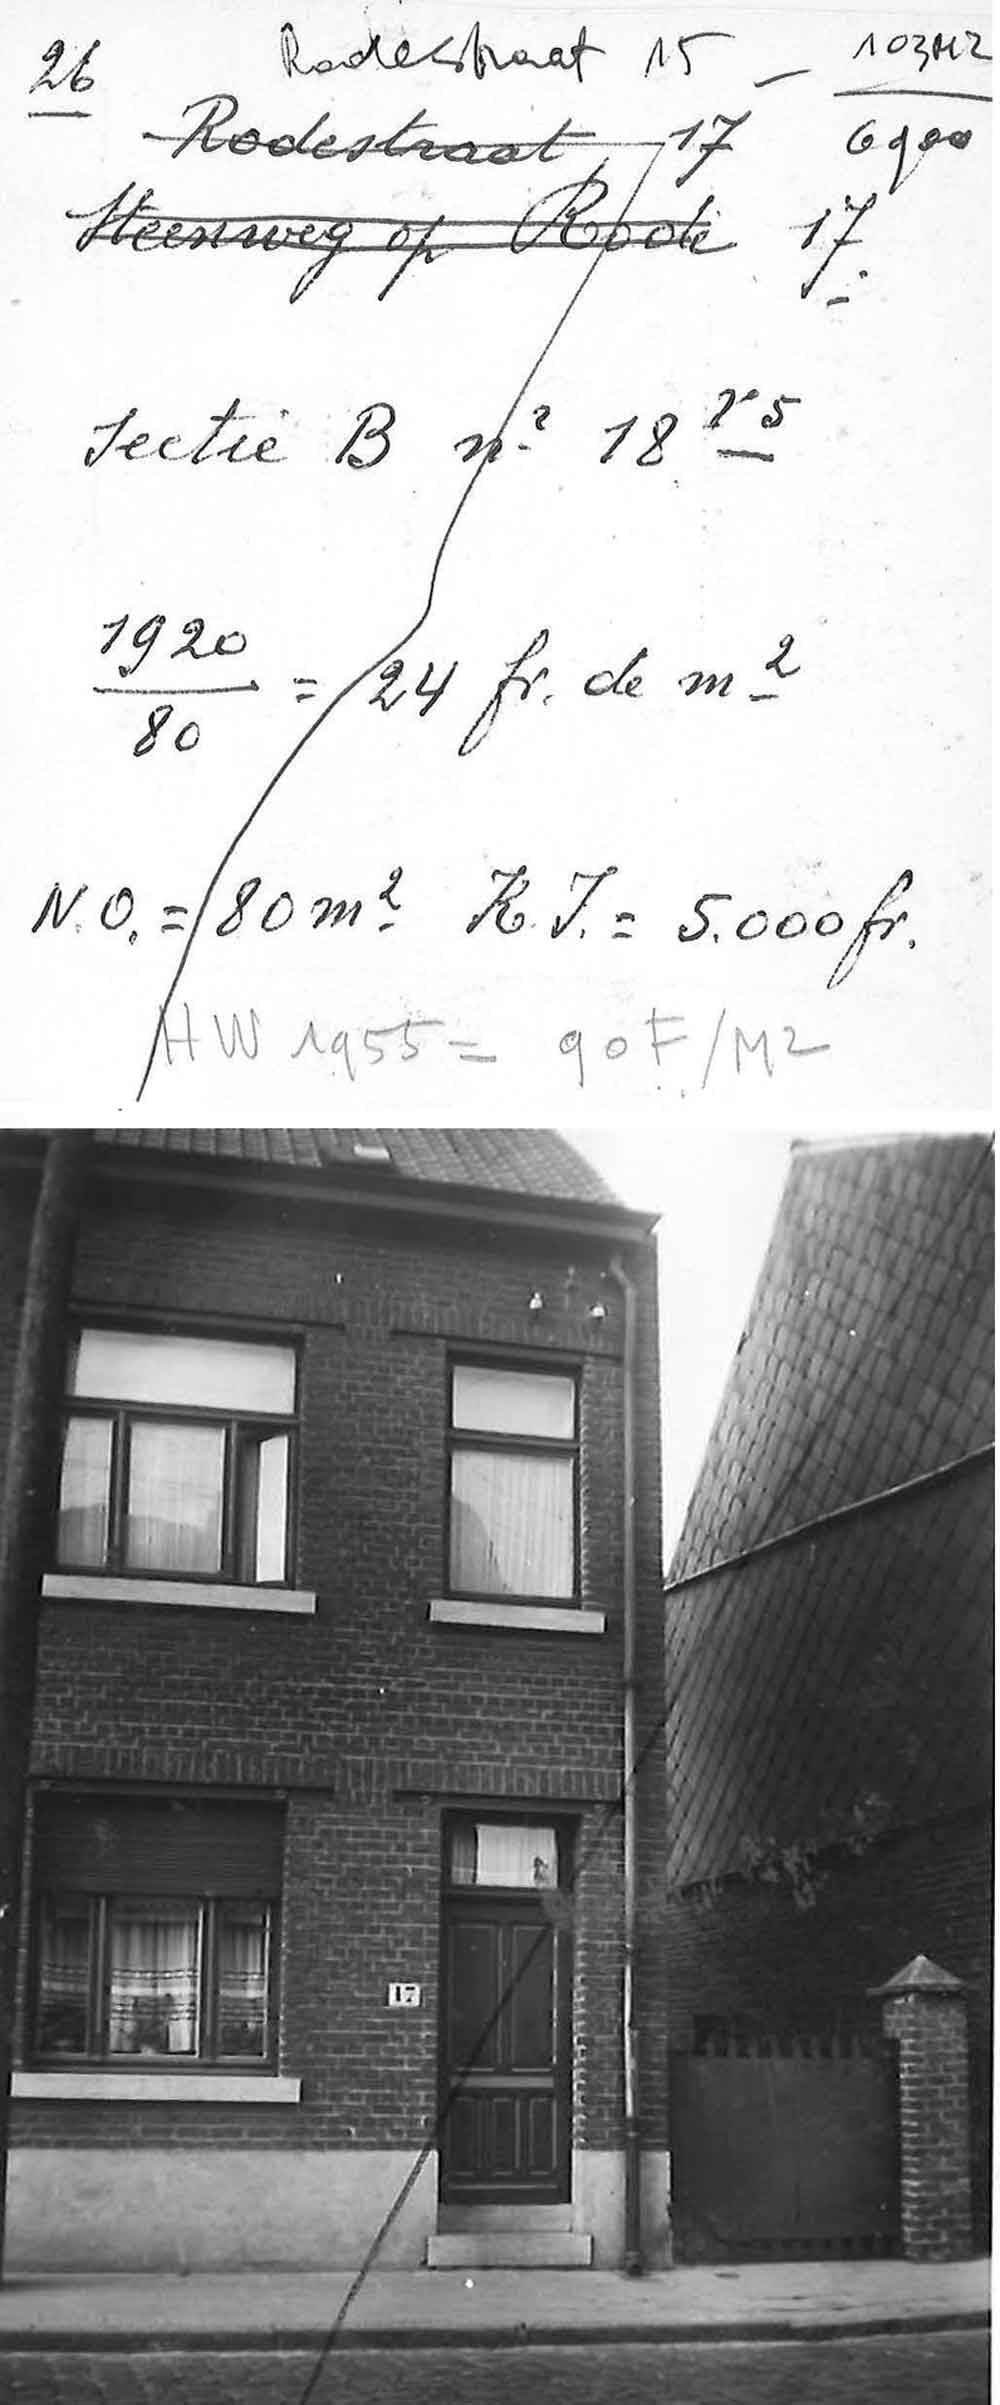 26 Rodestraat 15 - 103M2
Rodestraat 17 6900
Steenweg op Rode 17.
Sectie B n° 18 r5
1920
80
= 24 fr. de m2
N.O. = 80 m2. K.I. = 5.000 fr.
HW 1955 = 90F/M2
17